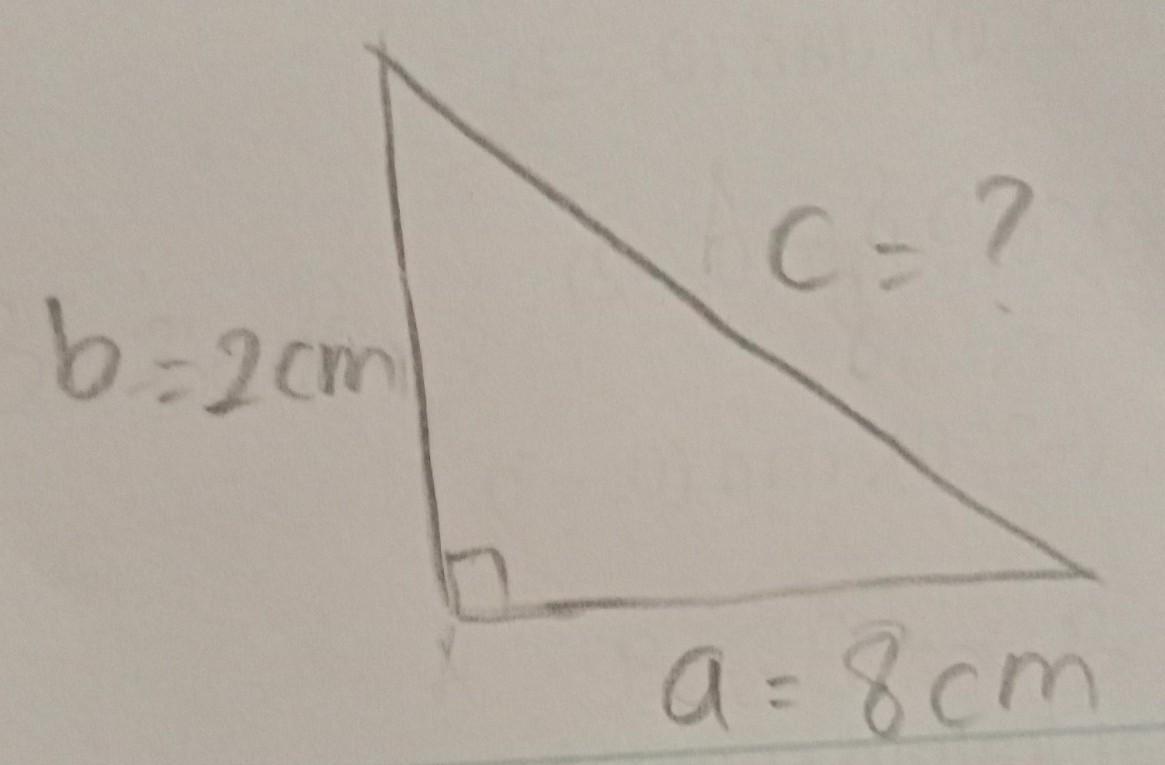 c = ?
b = 2cm
a = 8cm